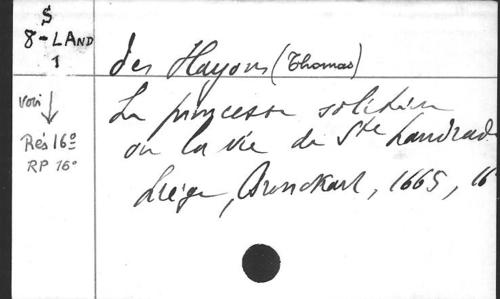 S
8-LAND
1
des Hayons (Thomas)
Voir
Rés 16º
RP 16º
La princesse solitaire
ou la vie de Ste Landrade
Liége, Bronckart, 1665, 16